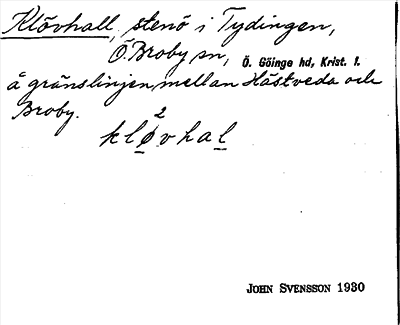 Klövhall, stenö i Tydingen,
Ö. Broby sn, Ö. Göinge hd, Krist. l.
å gränslinjen mellan Hästveda och
Broby.
2
kløvhal
JOHN SVENSSON 1930